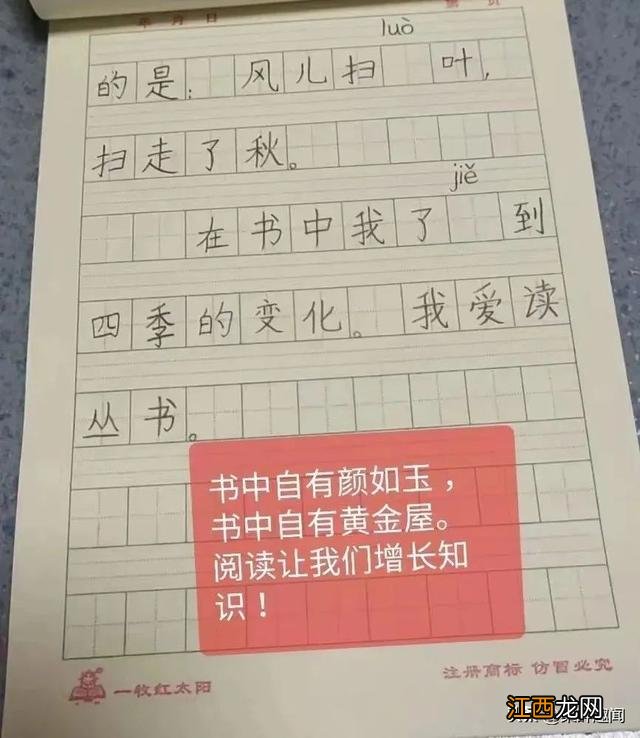 年 月 日
luò
的是：风儿扫 叶，
扫走了秋。
jiě
在书中我了 到
四季的变化。我爱读
丛书。
书中自有颜如玉，
书中自有黄金屋。
阅读让我们增长知
识！
一牧红太阳
注册商标 仿冒必究
江西龙网